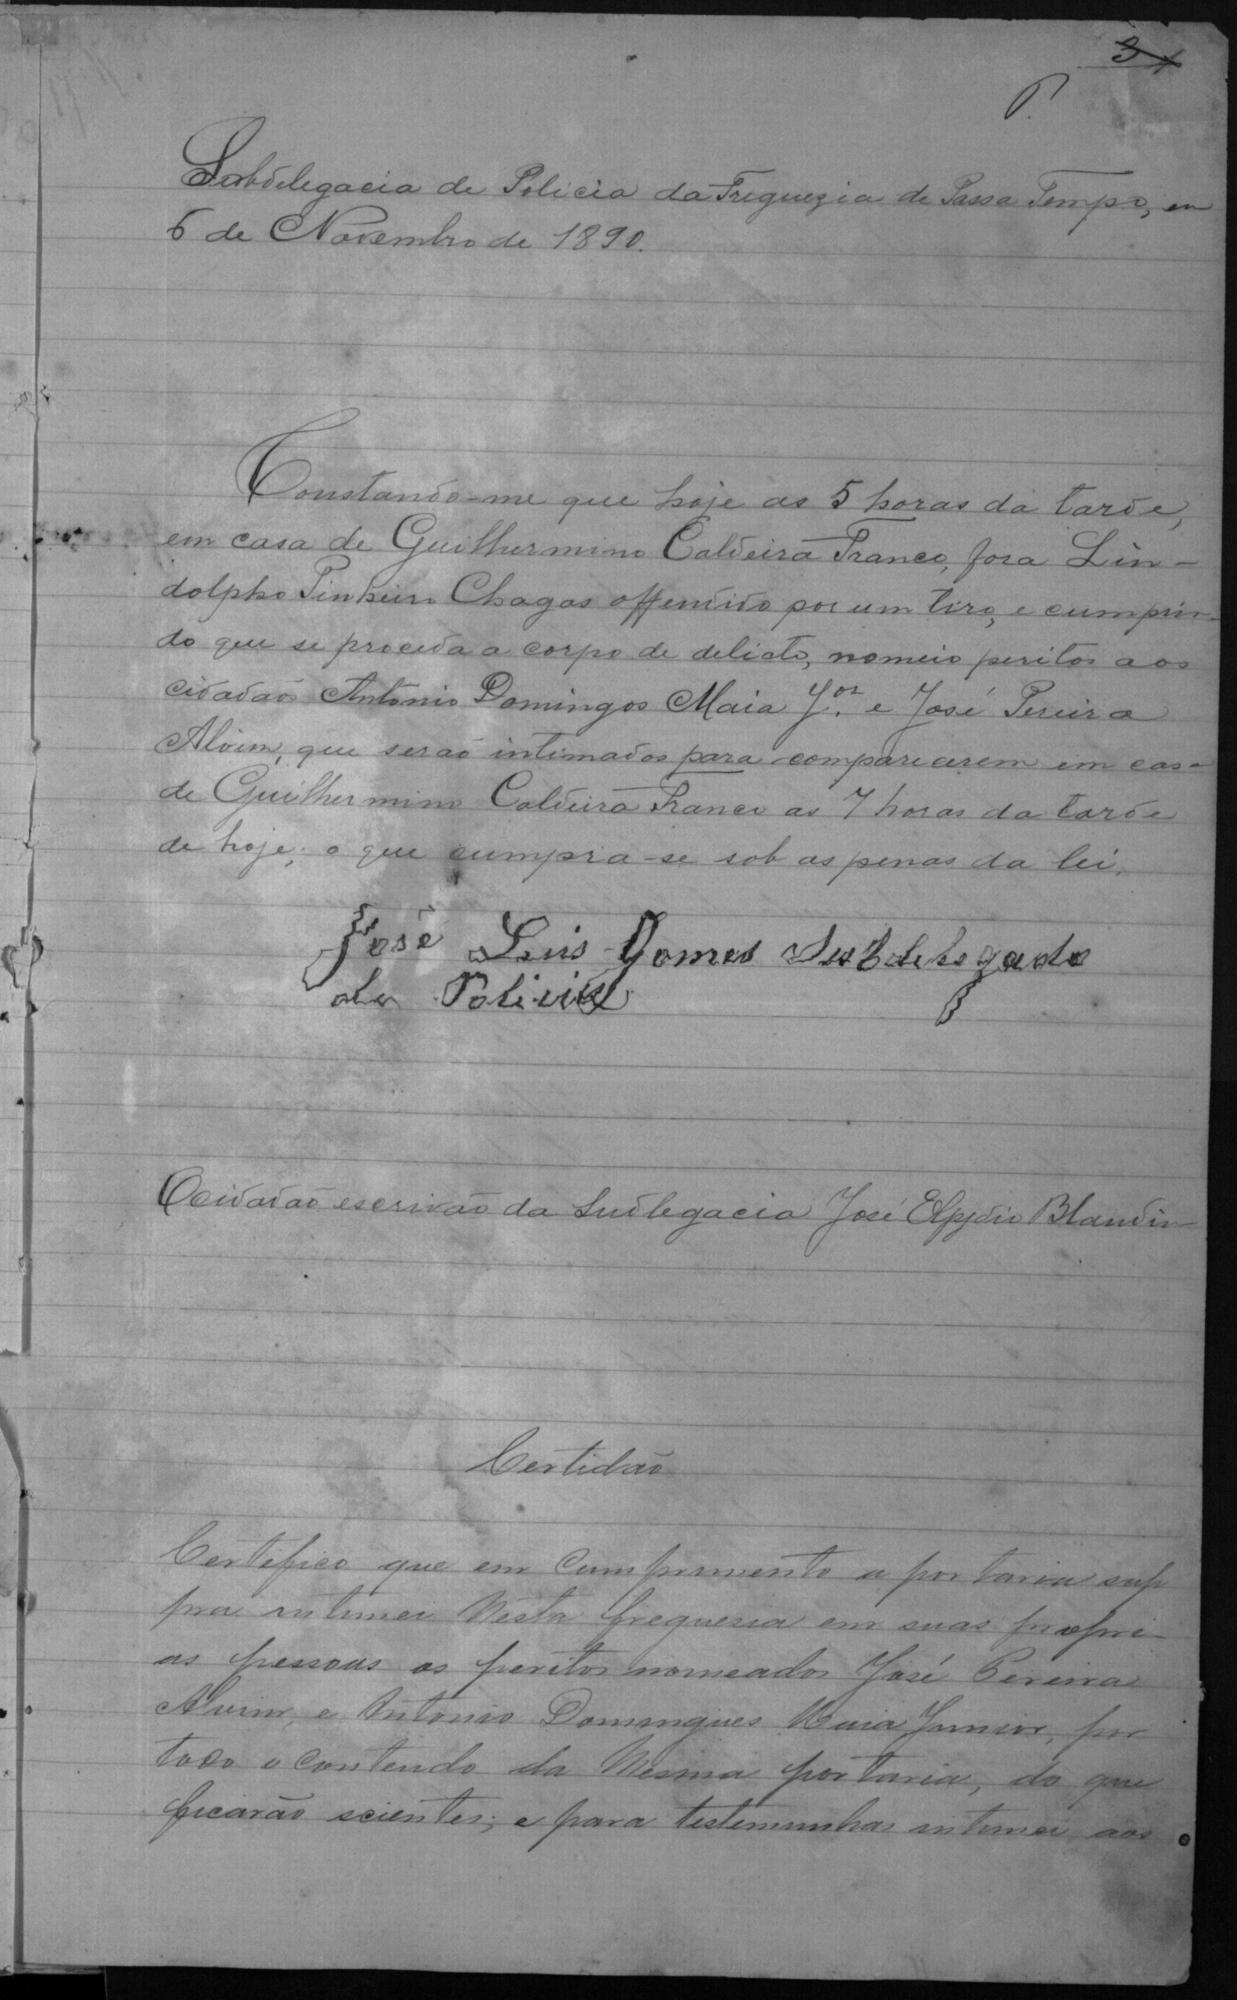 3
P.
Subdelegacia de Policia da Freguezia de Passa Tempo, em
6 de Novembro de 1890.
Constando-me que hoje as 5 horas da tarde,
em casa de Guilhermino Caldeira Franco, fora Lin-
dolpho Pinheiro Chagas offendido por um tiro, e cumprin-
do que se proceda a corpo de delicto, nomeio peritos aos
cidadãos Antonio Domingos Maia Jor. e José Pereira
Alvim, que serão intimados para comparecerem em cas-
de Guilhermino Caldeira Franco as 7 horas da tarde
de hoje; o que cumpra-se sob as penas da lei.
José Luis Gomes Subdelegado
de Policia
O cidadão escrivão da Sudlegacia José Elpydio Blandin-
Certidão
Certifico que em Cumprimento a portaria sup
pra intimei Nesta freguesia em suas propri-
as pessoas os peritos nomeados José Pereira
Alvim, e Antonio Domingues Maia Junior, por
todo o Contendo da Mesma portaria, do que
ficarão scientes; e para testemunhas intimei aos